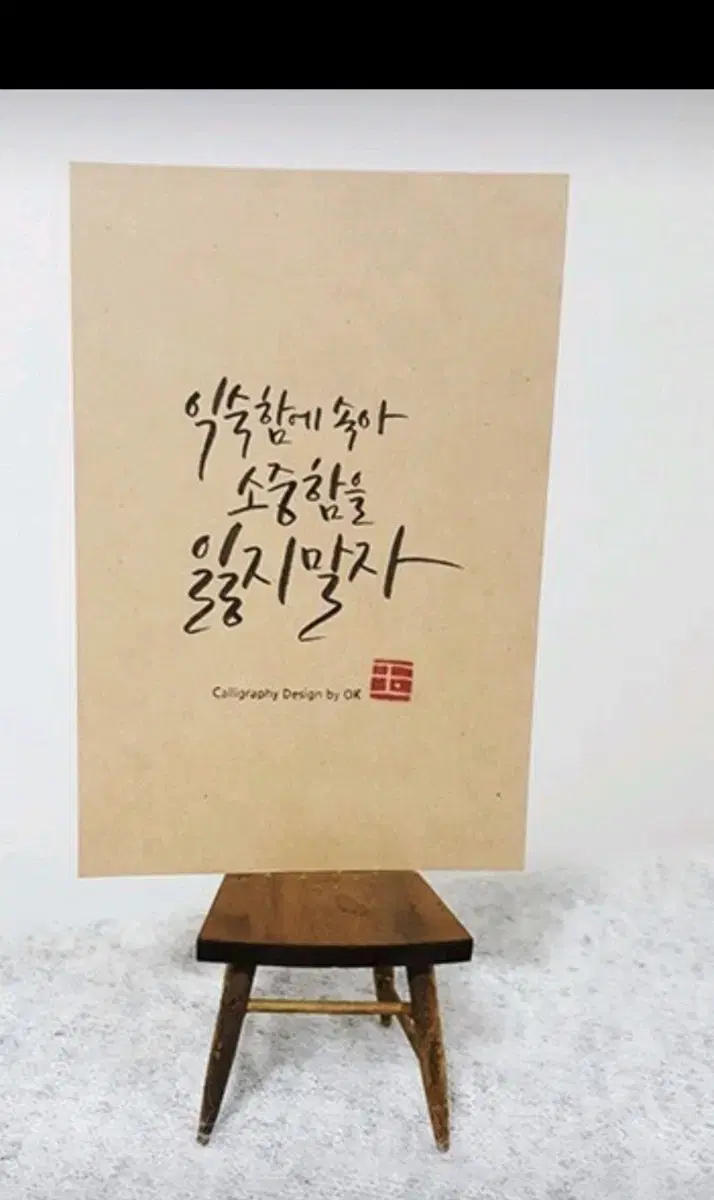 익숙함에 속아
소중함을
잃지말자
Calligraphy Design by OK